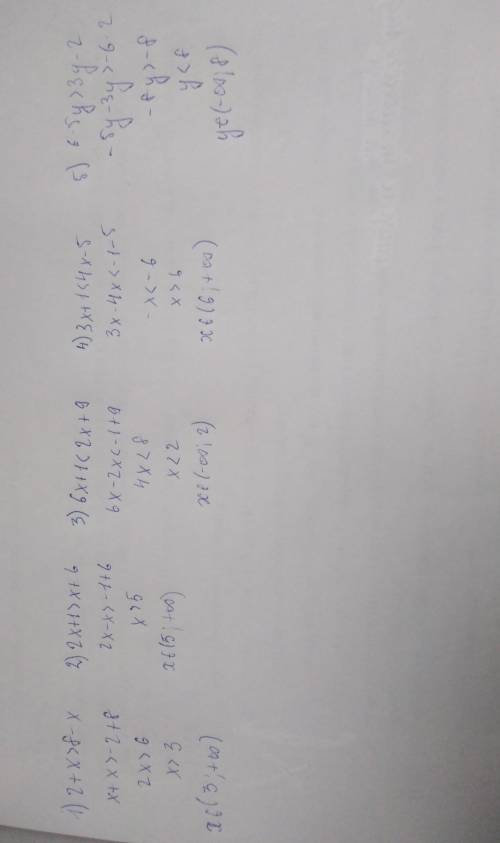 1) 2+x>8-x
x+x>-2+8
2x>6
x>3
x∈(3;+∞)
2) 2x+1>x+6
2x-x>-1+6
x>5
x∈(5;+∞)
3) 6x+1<2x+9
6x-2x<-1+9
4x<8
x<2
x∈(-∞;2)
4) 3x+1<4x-5
3x-4x<-1-5
-x<-6
x>6
x∈(6;+∞)
5) 6-5y>3y-2
-5y-3y>-6-2
-8y>-8
y<8
y∈(-∞;8)